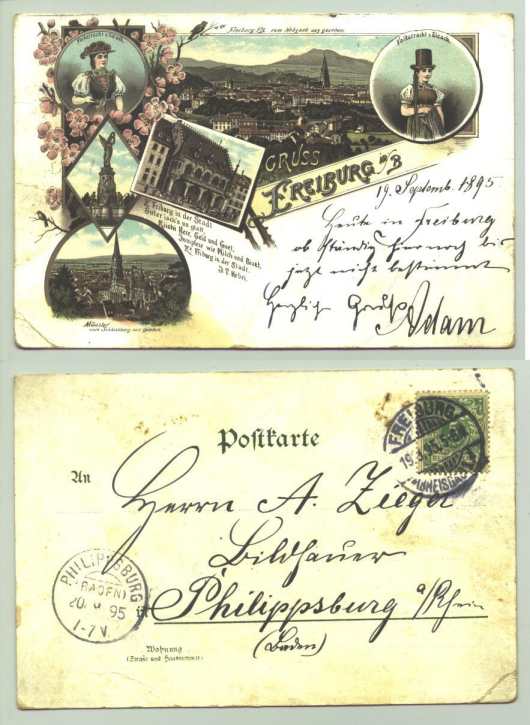 Freiburg i/B. vom
Volkstracht v. Elzach.
Volkstracht v. Elzach.
GRUSS
FREIBURG i/B
Z' Friburg in der Stadt
Sufer isch's un glatt.
Riichi Here, Geld und Guet,
Jumpfere wie Milch und Bluet,
Z' Friburg in der Stadt.
J. P. Hebel.
Münster
vom Schlossberg aus gesehen.
19. Septemb. 1895
Heute in Freiburg
ob ständig hier noch bis
jetzt nicht bestimmt
Herzlich Gruß
Adam
Postkarte
FREIBURG
An
Herrn A. Zieger
Bildhauer
Philippsburg a/Rhein
(Baden)
PHILIPPSBURG
(BADEN)
95
1-7 V.
Wohnung
(Straße und Hausnummer)